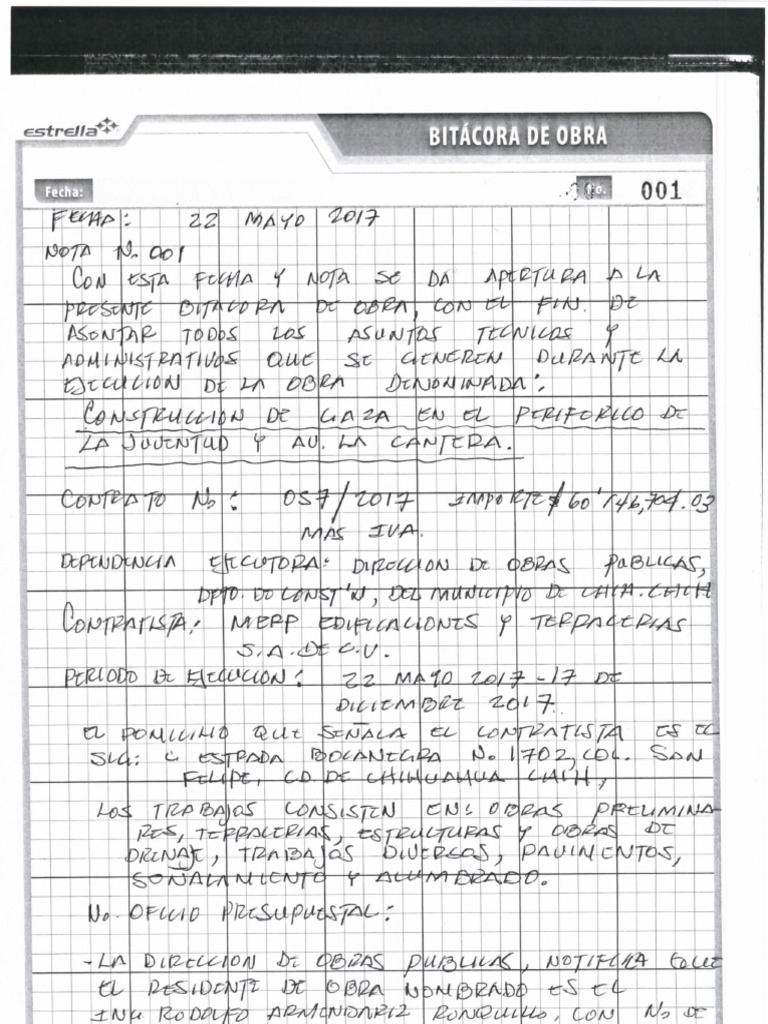 estrella
BITÁCORA DE OBRA
Fecha:
No. 001
FECHA: 22 MAYO 2017
NOTA N. 001
CON ESTA FECHA Y NOTA SE DA APERTURA A LA
PRESENTE BITACORA DE OBRA, CON EL FIN. DE
ASENTAR TODOS LOS ASUNTOS TECNICOS Y
ADMINISTRATIVOS QUE SE GENEREN DURANTE LA
EJECUCION DE LA OBRA DENOMINADA:
CONSTRUCCION DE GAZA EN EL PERIFERICO DE
LA JUVENTUD Y AV. LA CANTERA.
CONTRATO No: 057/2017 IMPORTE $ 60'146,704.03
MAS IVA.
DEPENDENCIA EJECUTORA: DIRECCION DE OBRAS PUBLICAS,
DPTO. DE CONST'N, DEL MUNICIPIO DE CHIH. CHIH
CONTRATISTA: MERP EDIFICACIONES Y TERRACERIAS
S.A. DE C.V.
PERIODO DE EJECUCION: 22 MAYO 2017 - 17 DE
DICIEMBRE 2017.
EL DOMICILIO QUE SEÑALA EL CONTRATISTA ES EL
SIG: C ESTRADA BOCANEGRA No. 1702, COL. SAN
FELIPE, CD DE CHIHUAHUA CHIH,
LOS TRABAJOS CONSISTEN EN: OBRAS PRELIMINA-
RES, TERRACERIAS, ESTRUCTURAS Y OBRAS DE
DRENAJE, TRABAJOS DIVERSOS, PAVIMENTOS,
SEÑALAMIENTO Y ALUMBRADO.
No. OFICIO PRESUPUESTAL:
- LA DIRECCION DE OBRAS PUBLICAS, NOTIFICA QUE
EL RESIDENTE DE OBRA NOMBRADO ES EL
ING RODOLFO ARMENDARIZ RONQUILLO, CON No DE